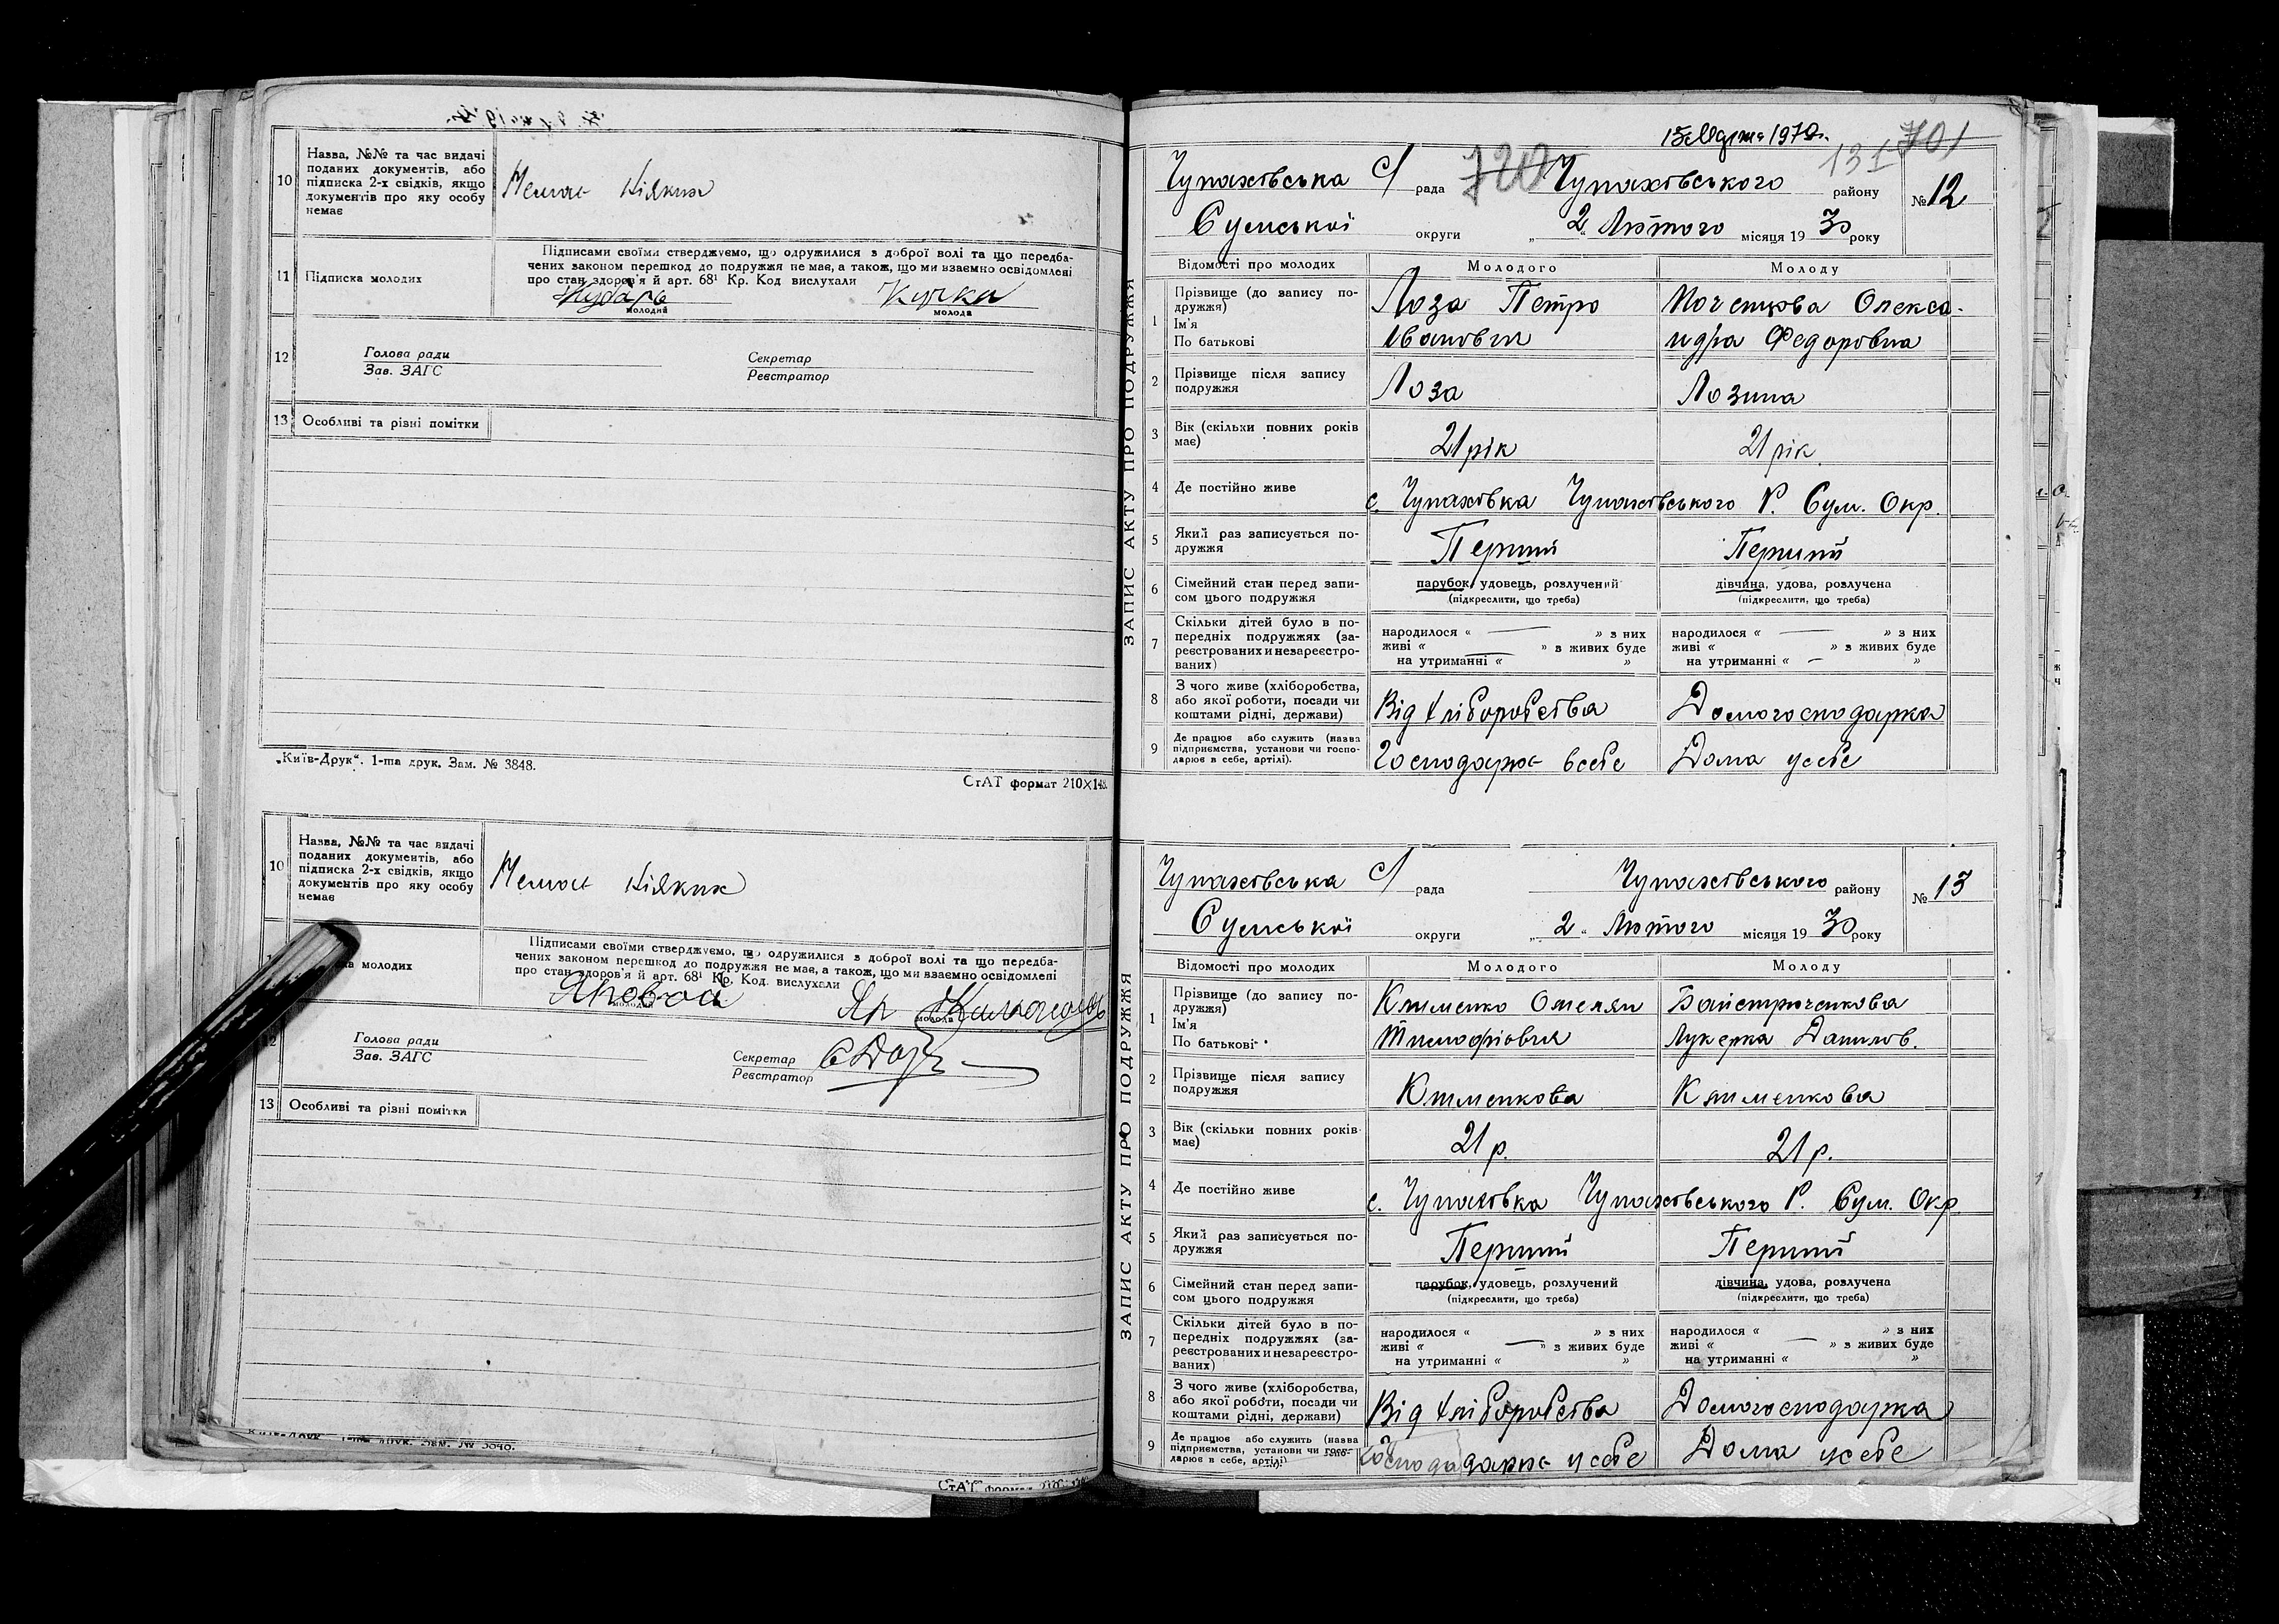 10
Назва, №№ та час видачі
поданих документів, або
підписка 2-х свідків, якщо
документів про яку особу
немає
Немає ніяких
11
Підписка молодих
Підписами своїми стверджуємо, що одружилися з доброї волі та що передба-
чених законом перешкод до подружжя не має, а також, що ми взаємно освідомлені
про стан здоров'я й арт. 68¹ Кр. Код вислухали
молодий
молода
12
Голова ради
Зав. ЗАГС
Секретар
Реєстратор
13
Особливі та різні помітки
„Київ-Друк“. 1-ша друк. Зам. № 3848.
СтАТ формат 210×148.
10
Назва, №№ та час видачі
поданих документів, або
підписка 2-х свідків, якщо
документів про яку особу
немає
Немає ніяких
молодих
Підписами своїми стверджуємо, що одружилися з доброї волі та що передба-
чених законом перешкод до подружжя не має, а також, що ми взаємно освідомлені
про стан здоров'я й арт. 68¹ Кр. Код. вислухали
молодий
молода
12
Голова ради
Зав. ЗАГС
Секретар
Реєстратор
13
Особливі та різні помітки
Київ-Друк 1-ша друк. Зам. № 3848.
СтАТ формат 210
1970г.
131
701
720
ЗАПИС АКТУ ПРО ПОДРУЖЖЯ
Чупахівська с/ рада Чупахівського району № 12
Сумської округи „2“ Лютого місяця 1930 року
Відомості про молодих Молодого Молоду
1
Прізвище (до запису по-
дружжя)
Ім'я
По батькові
Лоза Петро
Іванович
Моченкова Олекса-
ндра Федоровна
2
Прізвище після запису
подружжя
Лоза
Лозина
3
Вік (скільки повних років
має)
21 рік
21 рік
4
Де постійно живе
с. Чупахівка Чупахівського Р. Сум. Окр.
5
Який раз записується по-
дружжя
Перший
Перший
6
Сімейний стан перед запи-
сом цього подружжя
парубок, удовець, розлучений
(підкреслити, що треба)
дівчина, удова, розлучена
(підкреслити, що треба)
7
Скільки дітей було в по-
передніх подружжях (за-
реєстрованих и незареєстро-
ваних)
народилося « — » з них
живі « — » з живих буде
на утриманні « »
народилося « — » з них
живі « » з живих буде
на утриманні « — »
8
З чого живе (хліборобства,
або якої роботи, посади чи
коштами рідні, держави)
Від хліборобства
Домогосподарка
9
Де працює або служить (назва
підприємства, установи чи госпо-
дарює в себе, артілі).
Господарює всебе
Дома усебе
ЗАПИС АКТУ ПРО ПОДРУЖЖЯ
Чупахівська с/ рада Чупахівського району № 13
Сумської округи „2“ Лютого місяця 1930 року
Відомості про молодих Молодого Молоду
1
Прізвище (до запису по-
дружжя)
Ім'я
По батькові
Клименко Омелян
Тимофіович
Байстрюченкова
Лукерка Данилов.
2
Прізвище після запису
подружжя
Клименкова
Клименкова
3
Вік (скільки повних років
має)
21 р.
21 р.
4
Де постійно живе
с. Чупахівка Чупахівського Р. Сум. Окр.
5
Який раз записується по-
дружжя
Перший
Перший
6
Сімейний стан перед запи-
сом цього подружжя
парубок, удовець, розлучений
(підкреслити, що треба)
дівчина, удова, розлучена
(підкреслити, що треба)
7
Скільки дітей було в по-
передніх подружжях (за-
реєстрованих и незареєстро-
ваних)
народилося « » з них
живі « — » з живих буде
на утриманні « »
народилося « » з них
живі « — » з живих буде
на утриманні « »
8
З чого живе (хліборобства,
або якої роботи, посади чи
коштами рідні, держави)
Від хліборобства
Домогосподарка
9
Де працює або служить (назва
підприємства, установи чи госпо-
дарює в себе, артілі)
Господарює усебе
Дома усебе